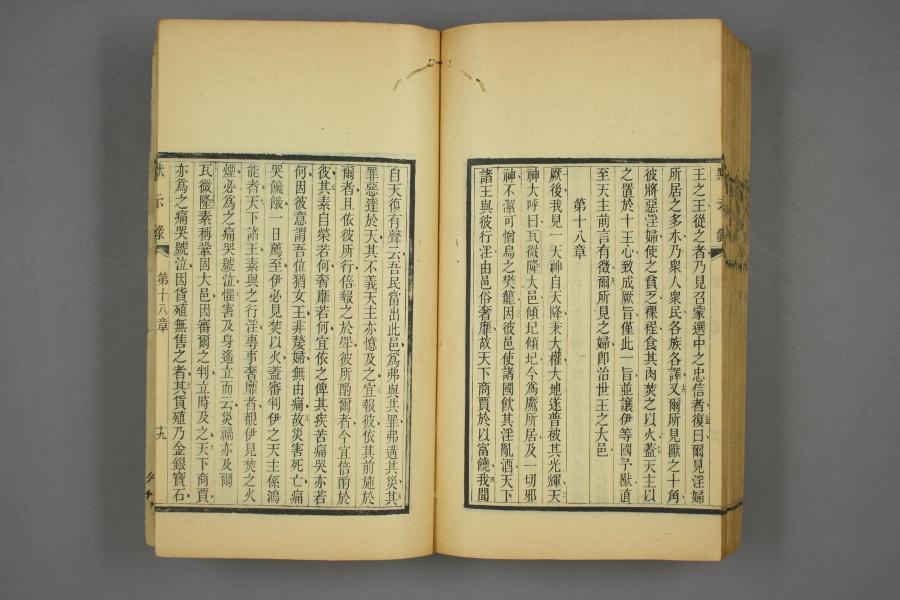 王之王從之者乃見召蒙選中之忠信者復曰爾見淫婦
所居之多水乃衆人衆民各族各譯又爾所見獸之十角
彼將惡淫婦使之貧乏裸程食其肉焚之以火蓋天主以
之置於十王心致成厥旨僅此一旨並讓伊等國予獸直
至天主前言有徵爾所見之婦即治世王之大邑
第十八章
厥後我見一天神自天降秉大權大地遂普被其光輝天
神大呼曰瓦微隆大邑傾圮傾圮今爲魔所居及一切邪
神不潔可憎鳥之樊籠因彼邑使諸國飲其淫亂酒天下
諸王與彼行淫由邑俗奢靡故天下商賈於以富饒我聞
自天復有聲云吾民當出此邑爲弗與其罪弗遘其災其
罪惡達於天其不義天主亦憶及之宜報彼依其前施於
爾者且依彼所行倍報之於斝彼所酌爾者今宜倍酌於
彼其素自榮若何奢靡若何宜依之俾其疾苦痛哭亦若
何因彼意謂吾位猶女王非嫠婦無由痛故災害死亡痛
哭饑餓一日薦至伊必見焚以火蓋審判伊之天主係鴻
能者天下諸王素與之行淫專事奢靡者覩伊見焚之火
煙必爲之痛哭號泣懼害及身遙立而云災禍亦及爾
瓦微隆素稱鞏固大邑因審爾之判立時及之天下商賈
亦爲之痛哭號泣因貨殖無售之者其貨殖乃金銀寶石
默示錄
第十八章
十九